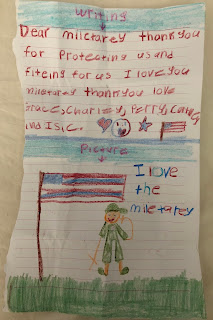 Writing
Dear milctarey thank you
for Protecting us and
fiteing for us I love you
miletarey thank you love
Grace, Charley, Perry,
and ISic.
Picture
I love
the
miletarey